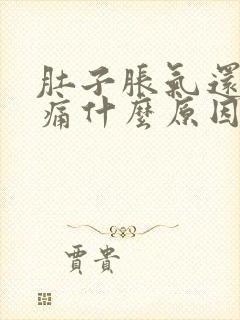 肚子脹氣還
痛什麼原因
賈貴